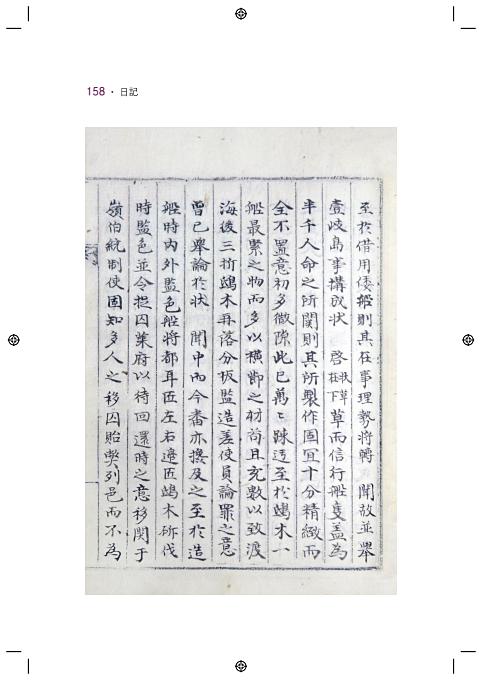 158 · 日記
至於借用倭船則其在事理勢將轉 聞故並擧
壹岐島事構成狀 啓狀草在下草而信行船隻盖爲
半千人命之所關則其所製作固宜十分精緻而
全不置意初多微隙此已萬〻踈迃至於鴟木一
船最緊之物而多以橫節之材苟且充數以致渡
海後三折鴟木再落分板監造差使員論罪之意
曾已擧論於狀 聞中而今番亦撥及之至於造
船時內外監色船將都耳匠左右邊匠鴟木斫伐
時監色並令捉囚萊府以待回還時之意移關于
嶺伯統制使固知多人之移囚貽弊列邑而不爲